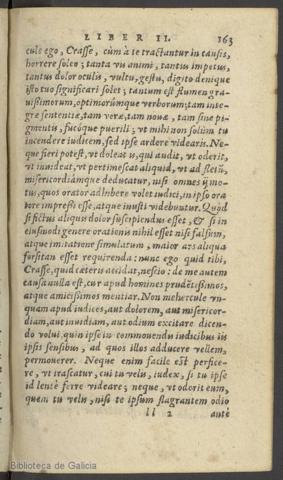 LIBER II. 163
cule ego, Crasse, cùm à te tractantur in causis,
horrere soleo; tanta vis animi, tantus impetus,
tantus dolor oculis, vultu, gestu, digito denique
isto tuo significari solet; tantum est flumen gra-
uissimorum, optimorúmque verborum; tam inte-
græ sententiæ, tam veræ, tam nouæ, tam sine pi-
gmentis, fucóque puerili; vt mihi non solùm tu
incendere iudicem, sed ipse ardere videaris. Ne-
que fieri potest, vt doleat is, qui audit, vt oderit,
vt inuideat, vt pertimescat aliquid, vt ad fletũ,
misericordiámque deducatur, nisi omnes ij mo-
tus, quos orator adhibere volet iudici, in ipso ora
tore impressi esse, atque inusti videbuntur. Quòd
si fictus aliquis dolor suscipiendus esset, & si in
eiusmodi genere orationis nihil esset nisi falsum,
atque imitatione simulatum, maior ars aliqua
forsitan esset requirenda: nunc ego quid tibi,
Crasse, quid cæteris accidat, nescio: de me autem
causa nulla est, cur apud homines prudẽtissimos,
atque amicissimos mentiar. Non mehercule vn-
quam apud iudices, aut dolorem, aut misericor-
diam, aut inuidiam, aut odium excitare dicen-
do volui, quin ipse in commouendis iudicibus iis
ipsis sensibus, ad quos illos adducere vellem,
permouerer. Neque enim facile est perfice-
re, vt irascatur, cui tu velis, iudex, si tu ipse
id lentè ferre videare; neque, vt oderit eum,
quem tu velis, nisi te ipsum flagrantem odio
ll 2 antè
Biblioteca de Galicia